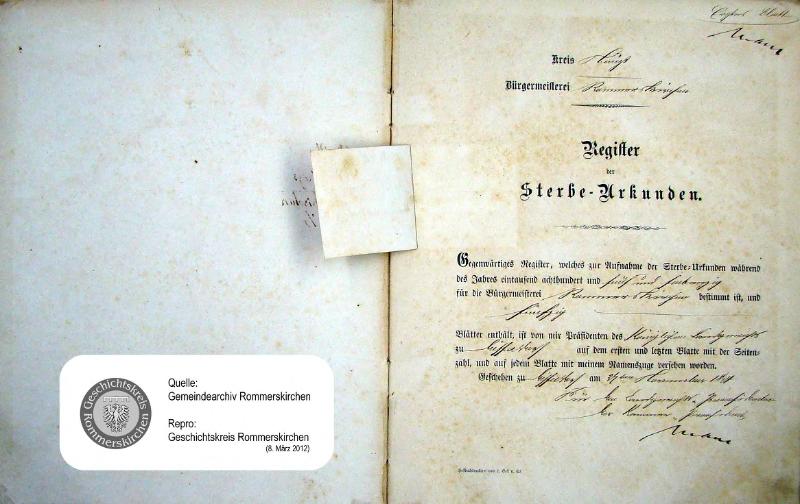 Erstes Blatt
Kreis Neuß
Bürgermeisterei Rommerskirchen
Register
der
Sterbe-Urkunden.
Gegenwärtiges Register, welches zur Aufnahme der Sterbe-Urkunden während
des Jahres eintausend achthundert und fünf und siebenzig
für die Bürgermeisterei Rommerskirchen bestimmt ist, und
fünfzig
Blätter enthält, ist von mir Präsidenten des Königlichen Landgerichts
zu Düsseldorf auf dem ersten und letzten Blatte mit der Seiten-
zahl, und auf jedem Blatte mit meinem Namenszuge versehen worden.
Geschehen zu Düsseldorf am November
Für den Landgerichts-Präsidenten
Der Kammer-Präsident
Quelle:
Gemeindearchiv Rommerskirchen
Repro:
Geschichtskreis Rommerskirchen
(8. März 2012)
Geschichtskreis
Rommerskirchen